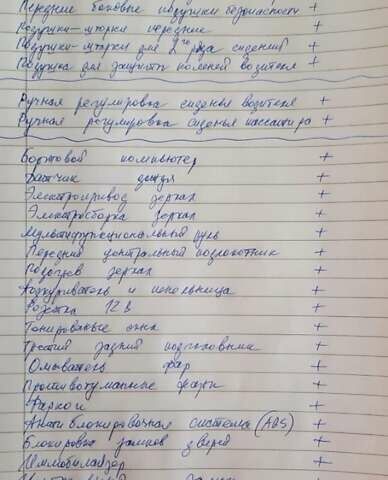 Передние боковые подушки безопасности +
Подушки-шторки передние +
Подушки-шторки для 2го ряда сидений +
Подушка для защиты коленей водителя +
Ручная регулировка сиденья водителя +
Ручная регулировка сиденья пассажира +
Бортовой компьютер +
Датчик дождя +
Электропривод зеркал +
Электросборка зеркал +
Мультифункциональный руль +
Передний центральный подлокотник +
Подогрев зеркал +
Прикуриватель и пепельница +
Розетка 12 В +
Тонированые окна +
Третий задний подголовник +
Омыватель фар +
Противотуманные фары +
Фаркоп +
Антиблокировочная система (ABS) +
Блокировка замков дверей +
Иммобилайзер +